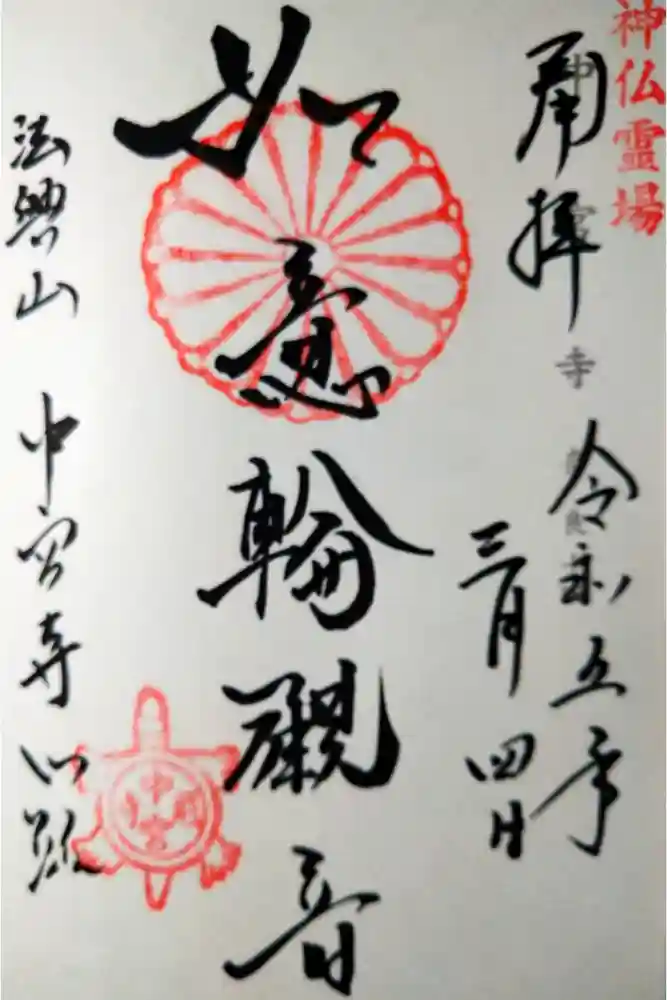 神仏霊場
奉拝
令和五年
三月四日
如意輪觀音
法興山 中宮寺 門跡